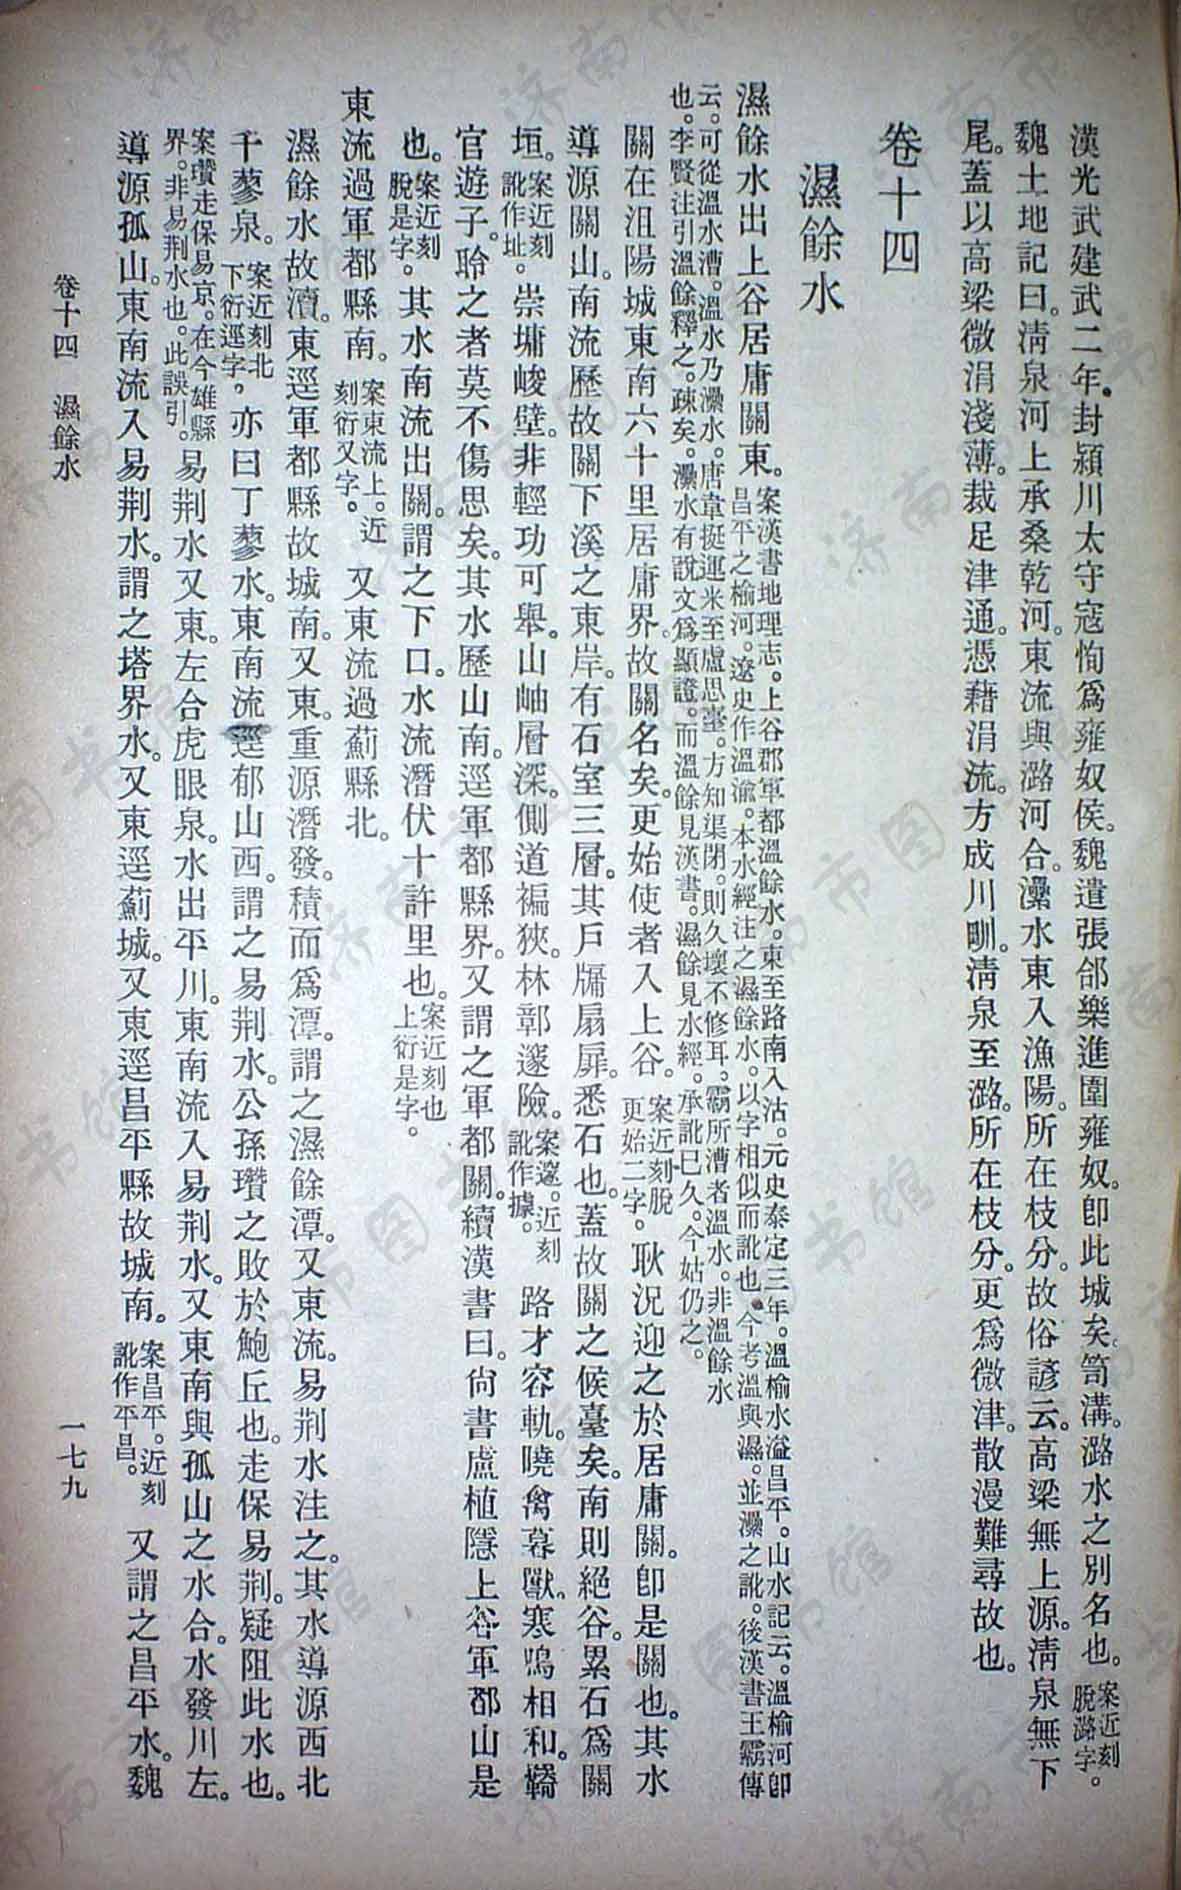 漢光武建武二年。封潁川太守寇恂爲雍奴侯。魏遣張郃樂進圍雍奴。卽此城矣。笥溝。潞水之別名也。案近刻脫潞字。
魏土地記曰。淸泉河上承桑乾河。東流與潞河合。灅水東入漁陽。所在枝分。故俗諺云。高梁無上源。淸泉無下
尾。蓋以高梁微涓淺薄。裁足津通。憑藉涓流。方成川甽。淸泉至潞。所在枝分。更爲微津。散漫難尋故也。
卷十四
濕餘水
濕餘水出上谷居庸關東。案漢書地理志。上谷郡軍都溫餘水。東至路南入沽。元史泰定三年。溫榆水溢昌平。山水記云。溫榆河卽
昌平之榆河。遼史作溫渝。本水經注之濕餘水。以字相似而訛也。今考溫與濕。並灅之訛。後漢書王霸傳
云。可從溫水漕。溫水乃灅水。唐韋挺運米至盧思臺。方知渠閉。則久壞不修耳。霸所漕者溫水。非溫餘水
也。李賢注引溫餘釋之。疎矣。灅水有說文爲顯證。而溫餘見漢書。濕餘見水經。承訛巳久。今姑仍之。
關在沮陽城東南六十里居庸界。故關名矣。更始使者入上谷。案近刻脫更始二字。耿況迎之於居庸關。卽是關也。其水
導源關山。南流歷故關下溪之東岸。有石室三層。其戶牖扇扉。悉石也。蓋故關之候臺矣。南則絕谷。累石爲關
垣。案近刻訛作址。崇墉峻壁。非輕功可舉。山岫層深。側道褊狹。林鄣邃險。案邃。近刻訛作據。路才容軌。曉禽暮獸。寒鳴相和。羈
官遊子。聆之者莫不傷思矣。其水歷山南。逕軍都縣界。又謂之軍都關。續漢書曰。尙書盧植隱上谷軍都山是
也。案近刻脫是字。其水南流出關。謂之下口。水流潛伏十許里也。案近刻也上衍是字。
東流過軍都縣南。案東流上。近刻衍又字。又東流過薊縣北。
濕餘水故瀆。東逕軍都縣故城南。又東。重源潛發。積而爲潭。謂之濕餘潭。又東流。易荆水注之。其水導源西北
千蓼泉。案近刻北下衍逕字。亦曰丁蓼水。東南流逕郁山西。謂之易荆水。公孫瓚之敗於鮑丘也。走保易荆。疑阻此水也。
案瓚走保易京。在今雄縣界。非易荆水也。此誤引。易荆水又東。左合虎眼泉。水出平川。東南流入易荆水。又東南與孤山之水合。水發川左。
導源孤山。東南流入易荆水。謂之塔界水。又東逕薊城。又東逕昌平縣故城南。案昌平。近刻訛作平昌。又謂之昌平水。魏
卷十四 濕餘水 一七九